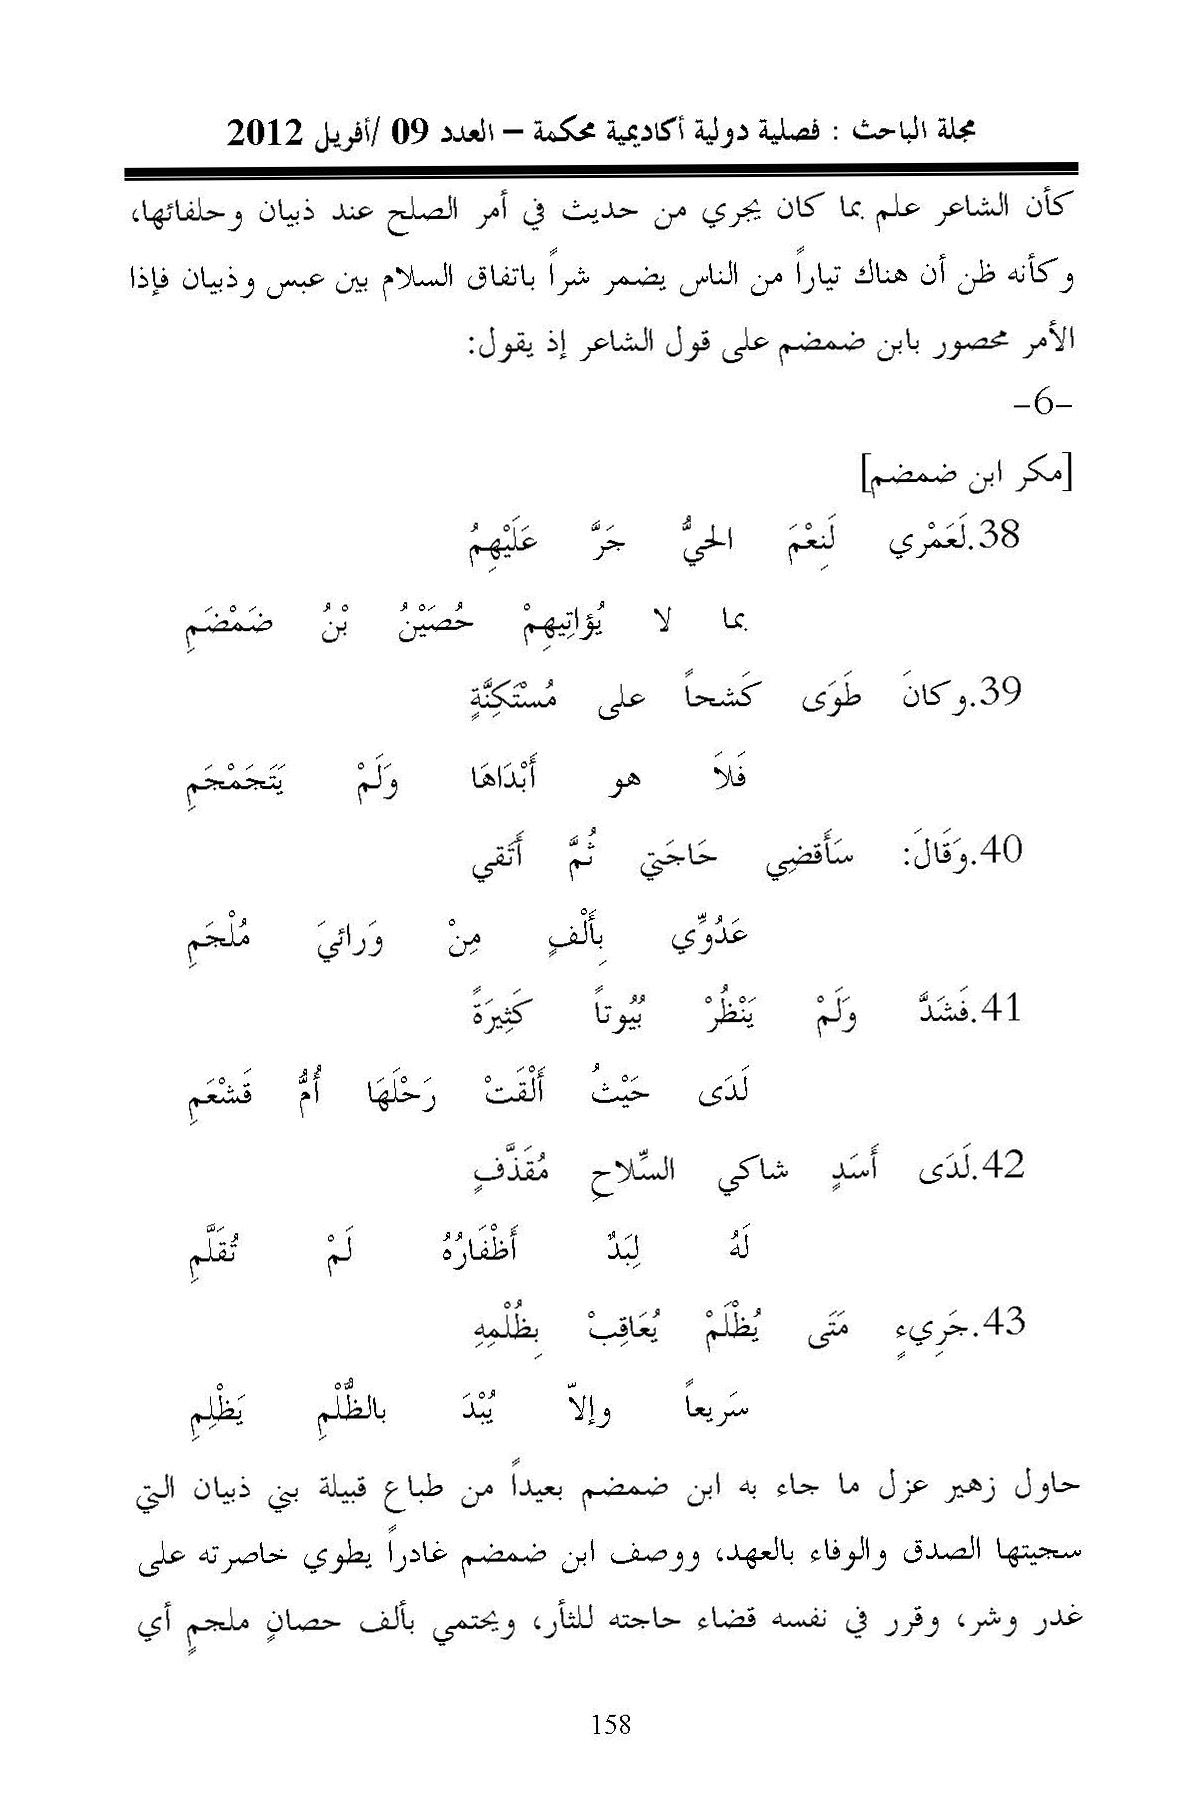 مجلة الباحث : فصلية دولية أكاديمية محكمة – العدد 09 /أفريل 2012
كأن الشاعر علم بما كان يجري من حديث في أمر الصلح عند ذبيان وحلفائها،
وكأنه ظن أن هناك تياراً من الناس يضمر شراً باتفاق السلام بين عبس وذبيان فإذا
الأمر محصور بابن ضمضم على قول الشاعر إذ يقول:
-6-
[مكر ابن ضمضم]
38.لَعَمْري لَنِعْمَ الحيُّ جَرَّ عَلَيْهِمُ
بما لا يُؤاتِيهِمْ حُصَيْنُ بْنُ ضَمْضَمِ
39.وكانَ طَوَى كَشحاً على مُسْتَكِنَّةٍ
فَلاَ هو أَبْدَاهَا وَلَمْ يَتَجَمْجَمِ
40.وَقَالَ: سَأَقضِي حَاجَتي ثُمَّ أَتَقي
عَدُوِّي بِأَلْفٍ مِنْ وَرائيَ مُلْجَمِ
41.فَشَدَّ وَلَمْ يَنْظُرْ بُيُوتاً كَثِيرَةً
لَدَى حَيْثُ أَلْقَتْ رَحْلَهَا أُمُّ قَشْعَمِ
42.لَدَى أَسَدٍ شاكي السِّلاحِ مُقَذَّفٍ
لَهُ لِبَدٌ أَظْفَارُهُ لَمْ تُقَلَّمِ
43.جَرِيءٍ مَتَى يُظْلَمْ يُعَاقِبْ بِظُلْمِهِ
سَريعاً وإلاّ يُبْدَ بالظُّلْمِ يَظْلِمِ
حاول زهير عزل ما جاء به ابن ضمضم بعيداً من طباع قبيلة بني ذبيان التي
سجيتها الصدق والوفاء بالعهد، ووصف ابن ضمضم غادراً يطوي خاصرته على
غدر وشر، وقرر في نفسه قضاء حاجته للثأر، ويحتمي بألف حصانٍ ملجمٍ أي
158